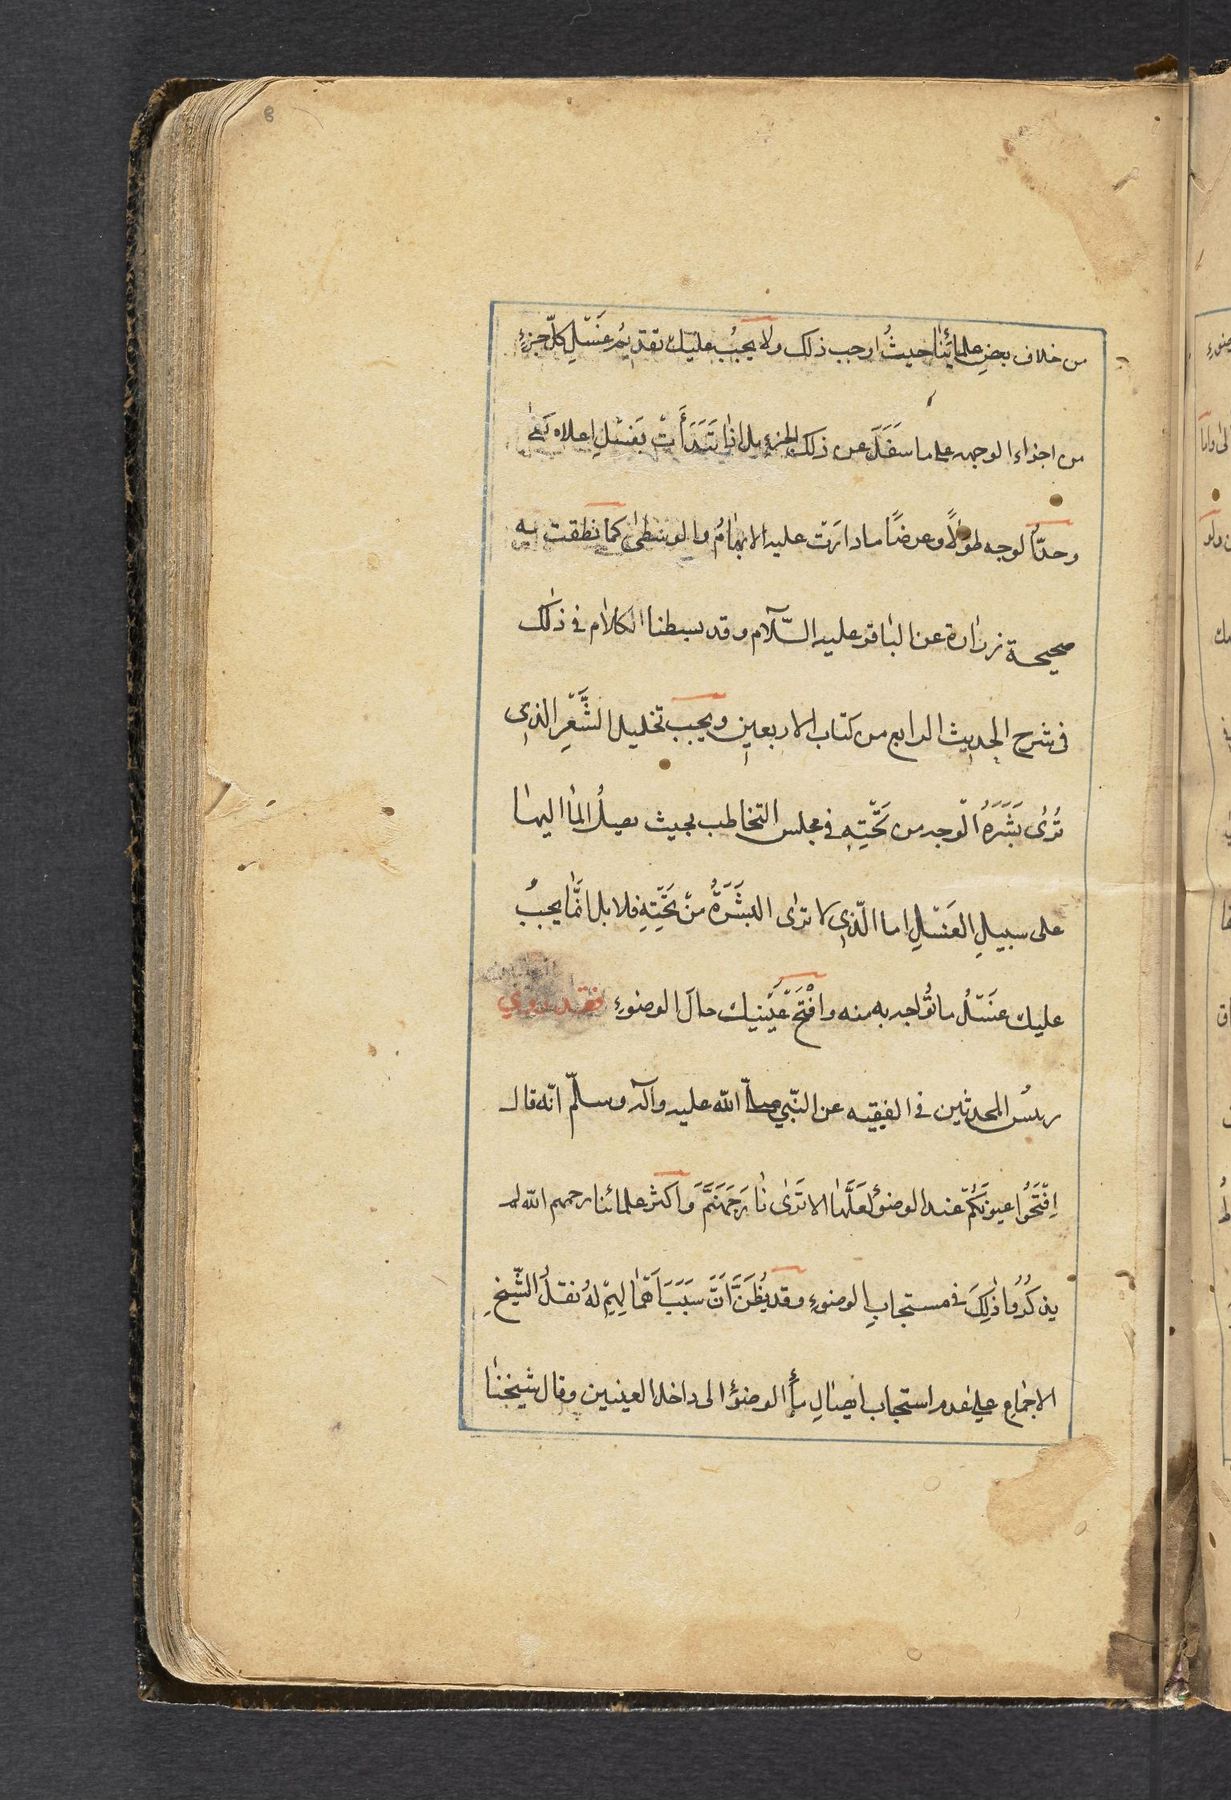 من خلاف بعضِ علمائِنا حيثُ اوجب ذلك ولا يجبُ عليك تقديمُ غَسْلِ كلّ جزءٍ
من اجزاء الوجه على ما سَفَلَ عن ذلك الجزءِ بل اذا ابتَدَأْتَ بغَسْلِ اعلاه كفى
وحدّ الوجه طولاً وعرضًا ما دارَت عليه الابهامُ والوسطىٰ كما نطقت به
صحيحة زرارة عن الباقر عليه السّلام وقد بسطنا الكلام فى ذلك
فى شرح الحديث الرابع من كتاب الاربعين ويجب تخليل الشَّعْرِ الذى
تُرٰى بَشَرَةُ الوجه من تَحْتِهِ فى مجلس التخاطب بحيث يصلُ الماۤ اليها
على سبيلِ الغَسْلِ اما الّذى لا ترٰى البَشَرَةُ منْ تَحْتِهِ فلا بل انّما يجبُ
عليك غَسْلُ ما تُواجه به منه وافْتَحْ عَيْنيك حال الوضوءِ فقد روي
رييسُ المحدثين فى الفقيه عن النّبي صلّى اللّه عليه وآله وسلّم انّه قال
اِفْتَحُوا عيونَكُمْ عند الوضوءِ لعَلَّها لا تَرٰى نارَ جَهَنَّمَ وَاكثر علمائنا رحمهم اللّه لم
يذكُرُوا ذٰلِكَ فى مستحبابِ الوضوءِ وقد يُظَنَّ اَنَّ سَبَبَ اَهْمالِهِمْ لهُ نقلُ الشّيخِ
الاجماع علىٰ عدم استحباب ايصالِ ماۤء الوضوءِ الى داخل العينين وقال شيخنا